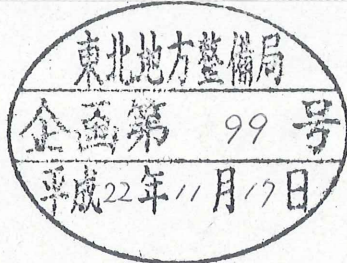 東北地方整備局
企画第 99 号
平成22年11月17日